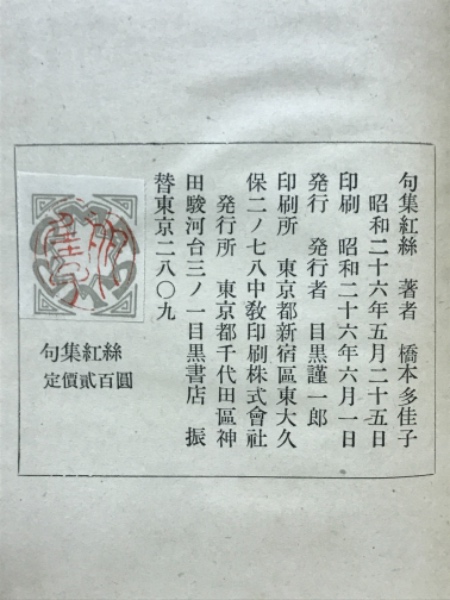 句集紅絲　著者　橋本多佳子
昭和二十六年五月二十五日
印刷　昭和二十六年六月一日
発行　発行者　目黒謹一郎
印刷所　東京都新宿區東大久
保二ノ七八中教印刷株式會社
発行所　東京都千代田區神
田駿河台三ノ一目黒書店　振
替東京二八〇九
句集紅絲
定價貳百圓